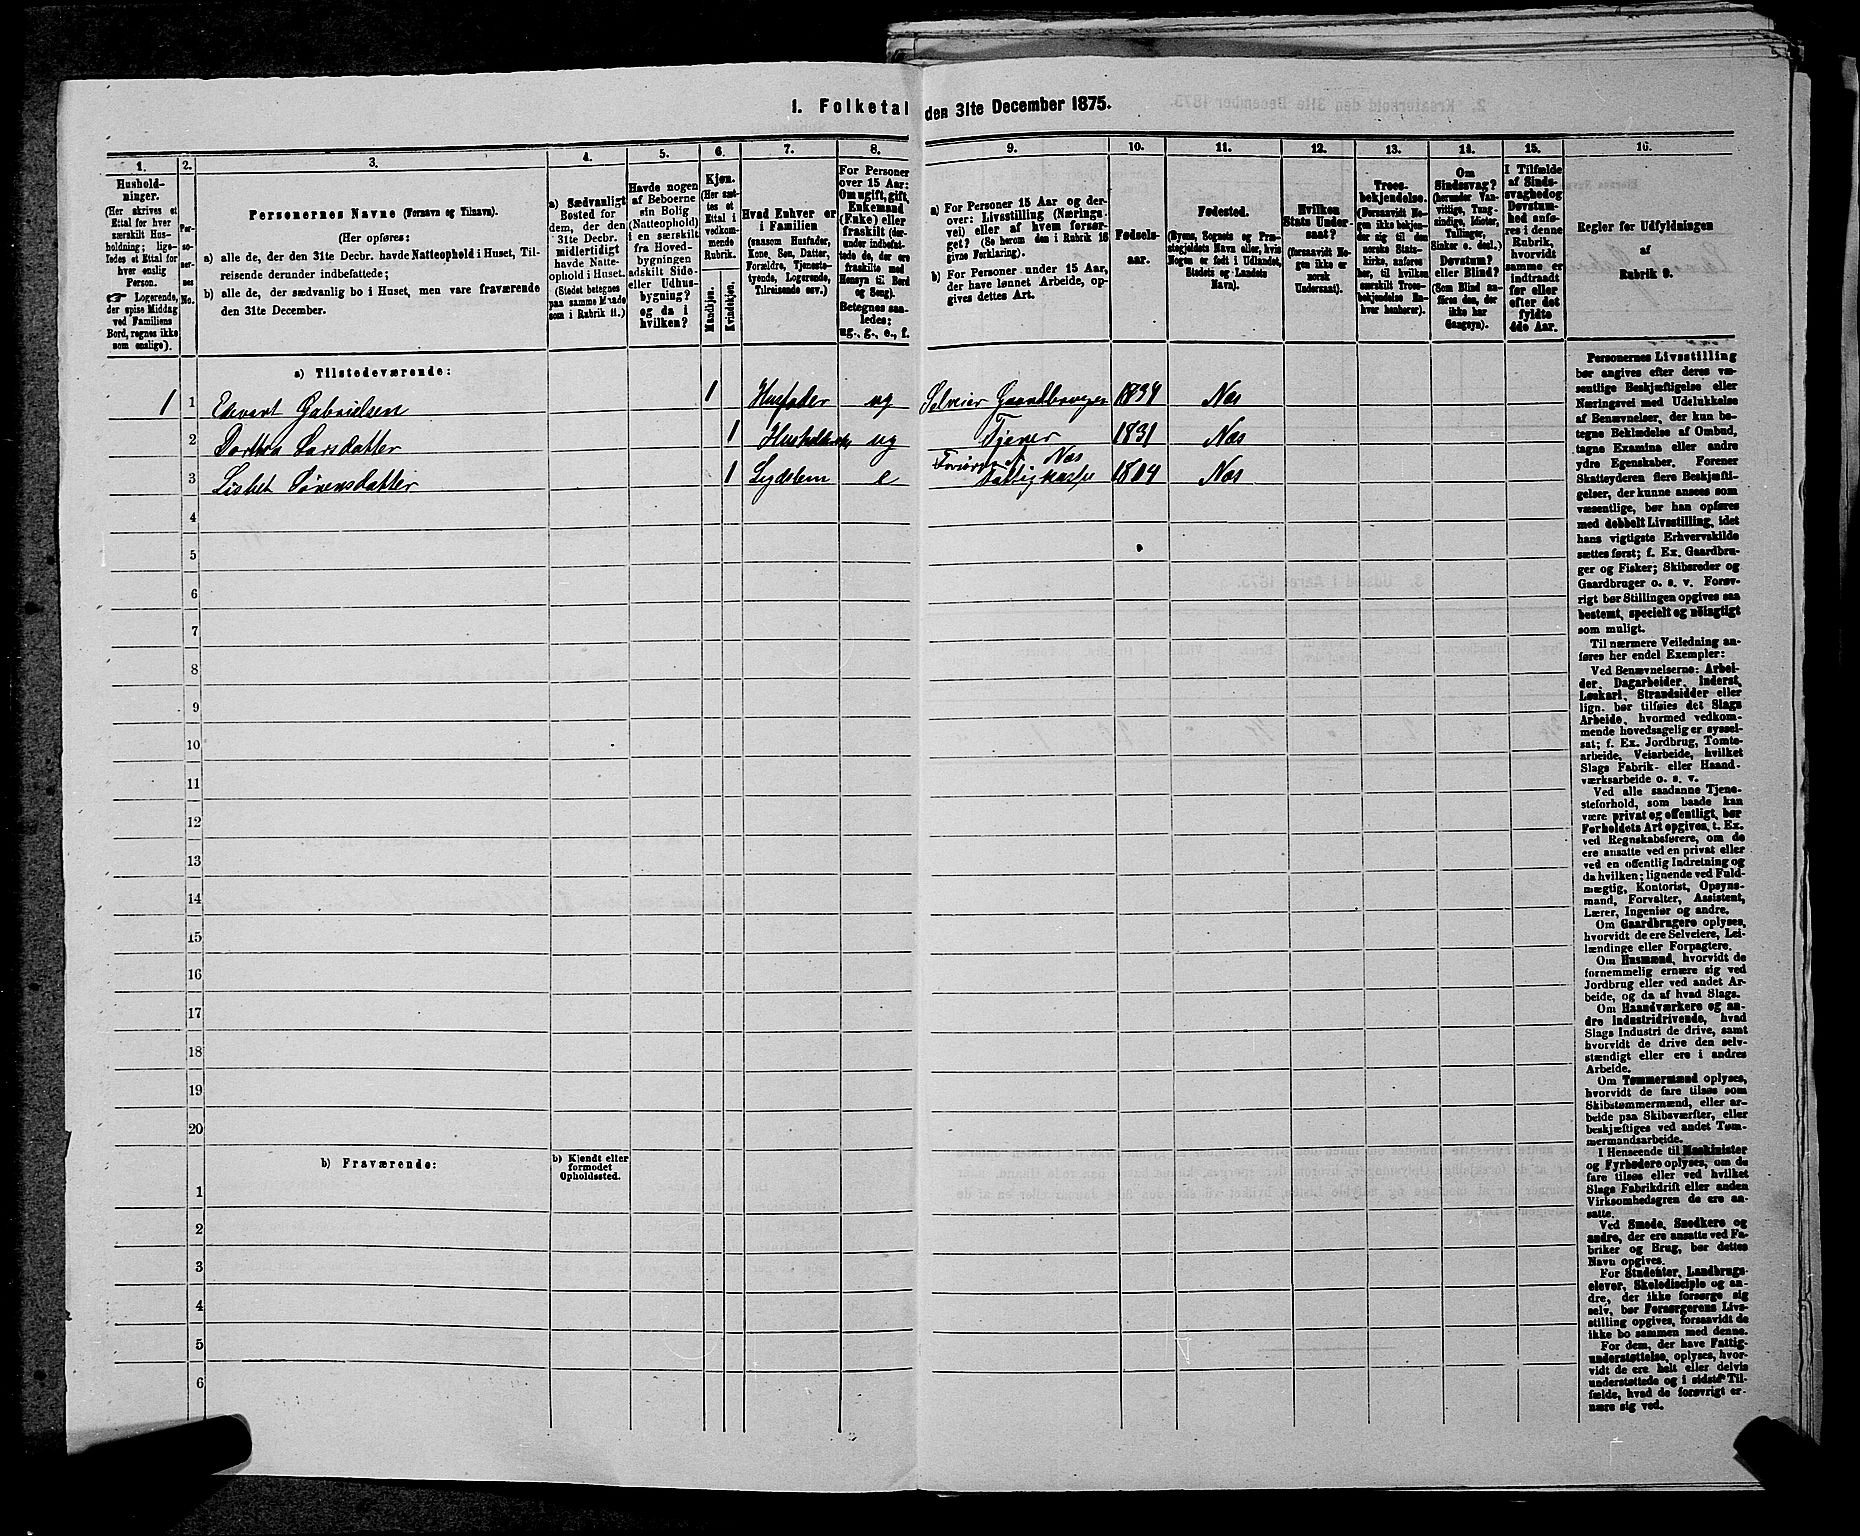 1. Folketal den 31te December 1875.
1.
2.
3.
4.
5.
6.
7.
8.
9.
10.
11.
12.
13.
14.
15.
16.
Hushold-
ninger.
(Her skrives et
Ettal for hver
særskilt Hus-
holdning; lige-
ledes et Ettal for
hver enslig
Person.
☞ Logerende,
der spise Middag
ved Familiens
Bord, regnes ikke
som enslige).
Per-
so-
ner-
nes
No.
Personernes Navne (Fornavn og Tilnavn).
(Her opføres:
a) alle de, der den 31te Decbr. havde Natteophold i Huset, Til-
reisende derunder indbefattede;
b) alle de, der sædvanlig bo i Huset, men vare fraværende
den 31te December.
a) Sædvanligt
Bosted for
dem, der den
31te Decbr.
midlertidigt
havde Natte-
ophold i Huset.
(Stedet betegnes
paa samme Maade
som i Rubrik 11.)
Havde nogen
af Beboerne
sin Bolig
(Natteophold)
i en særskilt
fra Hoved-
bygningen
adskilt Side-
eller Udhus-
bygning?
og da i
hvilken?
Kjøn.
(Her sæt-
tes et
Ettal i
vedkom-
mende
Rubrik.
Mandkjøn.
Kvindekjøn.
Hvad Enhver er
i Familien
(saasom Husfader,
Kone, Søn, Datter,
Forældre, Tjeneste-
tyende, Logerende,
Tilreisende osv.)
For Personer
over 15 Aar:
Om ugift, gift,
Enkemand
(Enke) eller
fraskilt (der-
under indbefat-
tede de, der ere
fraskilte med
Hensyn til Bord
og Seng).
Betegnes saa-
ledes:
ug., g., e., f.
a) For Personer 15 Aar og der-
over: Livsstilling (Nærings-
vei) eller af hvem forsør-
get? (Se herom den i Rubrik 16
givne Forklaring).
b) For Personer under 15 Aar,
der have lønnet Arbeide, op-
gives dettes Art.
Fødsels-
aar.
Fødested.
(Byens, Sognets og Præ-
stegjeldets Navn eller, hvis
Nogen er født i Udlandet,
Stedets og Landets
Navn).
Hvilken
Stats Under-
saat?
(forsaavidt No-
gen ikke er
norsk
Undersaat).
Troes-
bekjendelse.
(Forsaavidt No-
gen ikke bekjen-
der sig til den
norske Stats-
kirke, anføres
her, til hvilken
særskilt Troes-
bekjendelse En-
hver henhører).
Om
Sindssvag?
(herunder Van-
vittige, Tung-
sindige, Idioter,
Tullinger,
Sinker o. desl.)
Døvstum?
eller Blind?
(Som Blind an-
føres den, der
ikke har
Gangsyn).
I Tilfælde
af Sinds-
svaghed og
Døvstum-
hed anfø-
res i denne
Rubrik,
hvorvidt
samme er
indtraadt
før eller
efter det
fyldte
4de Aar.
Regler for Udfyldningen
af
Rubrik 9.
a) Tilstedeværende:
1 1 Edvart Gabrielsen 1 Husfader ug Selveier Gaardbruger 1834 Næs
2 Dorthea Larsdatter 1 ug Tjener 1831 Næs
3 Lisbet Sørensdatter 1 e Næs
Fattigkasse 1804 Næs
4
5
6
7
8
9
10
11
12
13
14
15
16
17
18
19
20
b) Fraværende:
b) Kjendt eller
formodet
Opholdssted.
1
2
3
4
5
6
Personernes Livsstilling
bør angives efter deres væ-
sentlige Beskjæftigelse eller
Næringsvei med Udelukkelse
af Benævnelser, der kun be-
tegne Beklædelse af Ombud,
tagne Examina eller andre
ydre Egenskaber. Forener
Skatteyderen flere Beskjæfti-
gelser, der kunne ansees som
væsentlige, bør han opføres
med dobbelt Livsstilling, idet
hans vigtigste Erhvervskilde
sættes først; f. Ex. Gaardbru-
ger og Fisker; Skibsreder og
Gaardbruger o. s. v. Forøv-
rigt bør Stillingen opgives saa
bestemt, specielt og nöiagtigt
som muligt.
Til nærmere Veiledning an-
føres her endel Exempler:
Ved Benævnelserne: Arbei-
der, Dagarbeider, Inderst,
Løskarl, Strandsidder eller
lign. bør tilføies det Slags
Arbeide, hvormed vedkom-
mende hovedsagelig er syssel-
sat; f. Ex. Jordbrug, Tomte-
arbeide, Veiarbeide, hvilket
Slags Fabrik- eller Haand-
værksarbeide o. s. v.
Ved alle saadanne Tjene-
steforhold, som baade kan
være privat og offentligt, bør
Forholdets Art opgives, t. Ex.
ved Regnskabsførere, om de
ere ansatte ved en privat eller
ved en offentlig Indretning og
da hvilken; lignende ved Fuld-
mægtig, Kontorist, Opsyns-
mand, Forvalter, Assistent,
Lærer, Ingeniør og andre.
Om Gaardbrugere oplyses,
hvorvidt de ere Selveiere, Lei-
lændinge eller Forpagtere.
Om Husmænd, hvorvidt de
fornemmelig ernære sig ved
Jordbrug eller ved andet Ar-
beide, og da af hvad Slags.
Om Haandværkere og an-
dre Industridrivende, hvad
Slags Industri de drive, samt
hvorvidt de drive den selv-
stændigt eller ere i andres
Arbeide.
Om Tømmermænd oplyses,
hvorvidt de fare tilsøs som
Skibstømmermænd, eller ar-
beide paa Skibsværfter, eller
beskjæftiges ved andet Tøm-
mermandsarbeide.
I Henseende til Maskinister
og Fyrbødere oplyses, om de
fare tilsøs eller ved hvilket
Slags Fabrikdrift eller anden
Virksomhedsgren de ere an-
satte.
Ved Smede, Snedkere og
andre, der ere ansatte ved Fa-
briker og Brug, bør dettes
Navn opgives.
For Studenter, Landbrugs-
elever, Skoledisciple og an-
dre, der ikke forsørge sig
selv, bør Forsørgerens Livs-
stilling opgives, forsaavidt de
ikke bo sammen med denne.
For dem, der have Fattig-
understøttelse, oplyses, hvor-
vidt de ere helt eller delvis
understøttede og i sidste Til-
fælde, hvad de forøvrigt er-
nære sig ved.